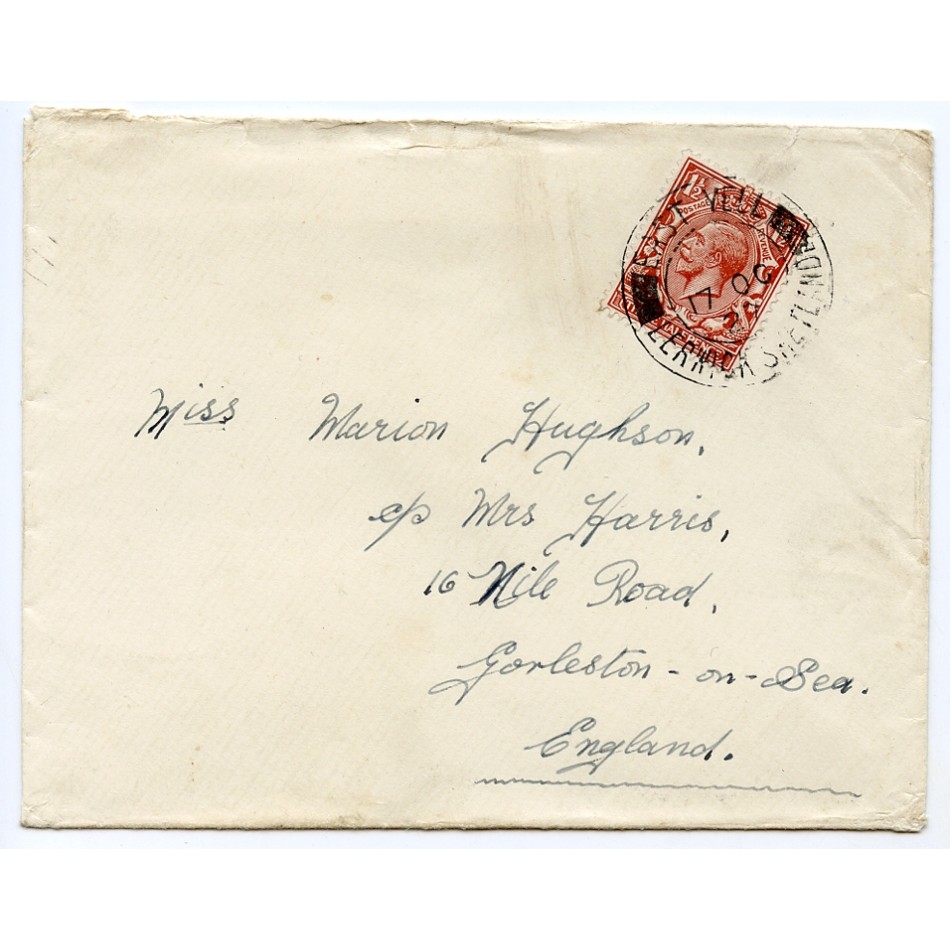 1½
POSTAGE REVENUE
EAST YELL
17 OC
LERWICK SHETLAND
Miss Marion Hughson,
c/o Mrs Harris,
16 Nile Road,
Gorleston-on-Sea.
England.